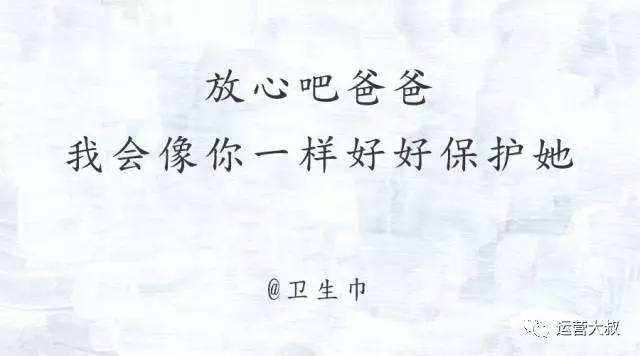 放心吧爸爸
我会像你一样好好保护她
@卫生巾
运营大叔